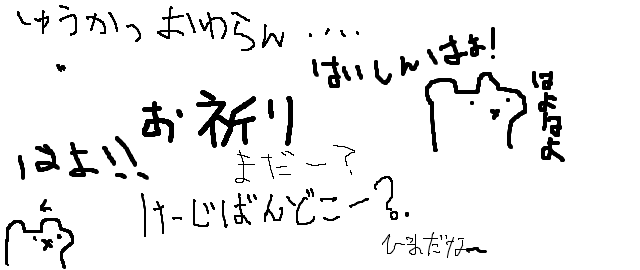 しゅうかつ おわらん ‥‥
はいしんはよ!
はよねよ
お祈り
はよ!!
まだー?
けーじばんどこー?。
ひまだなー